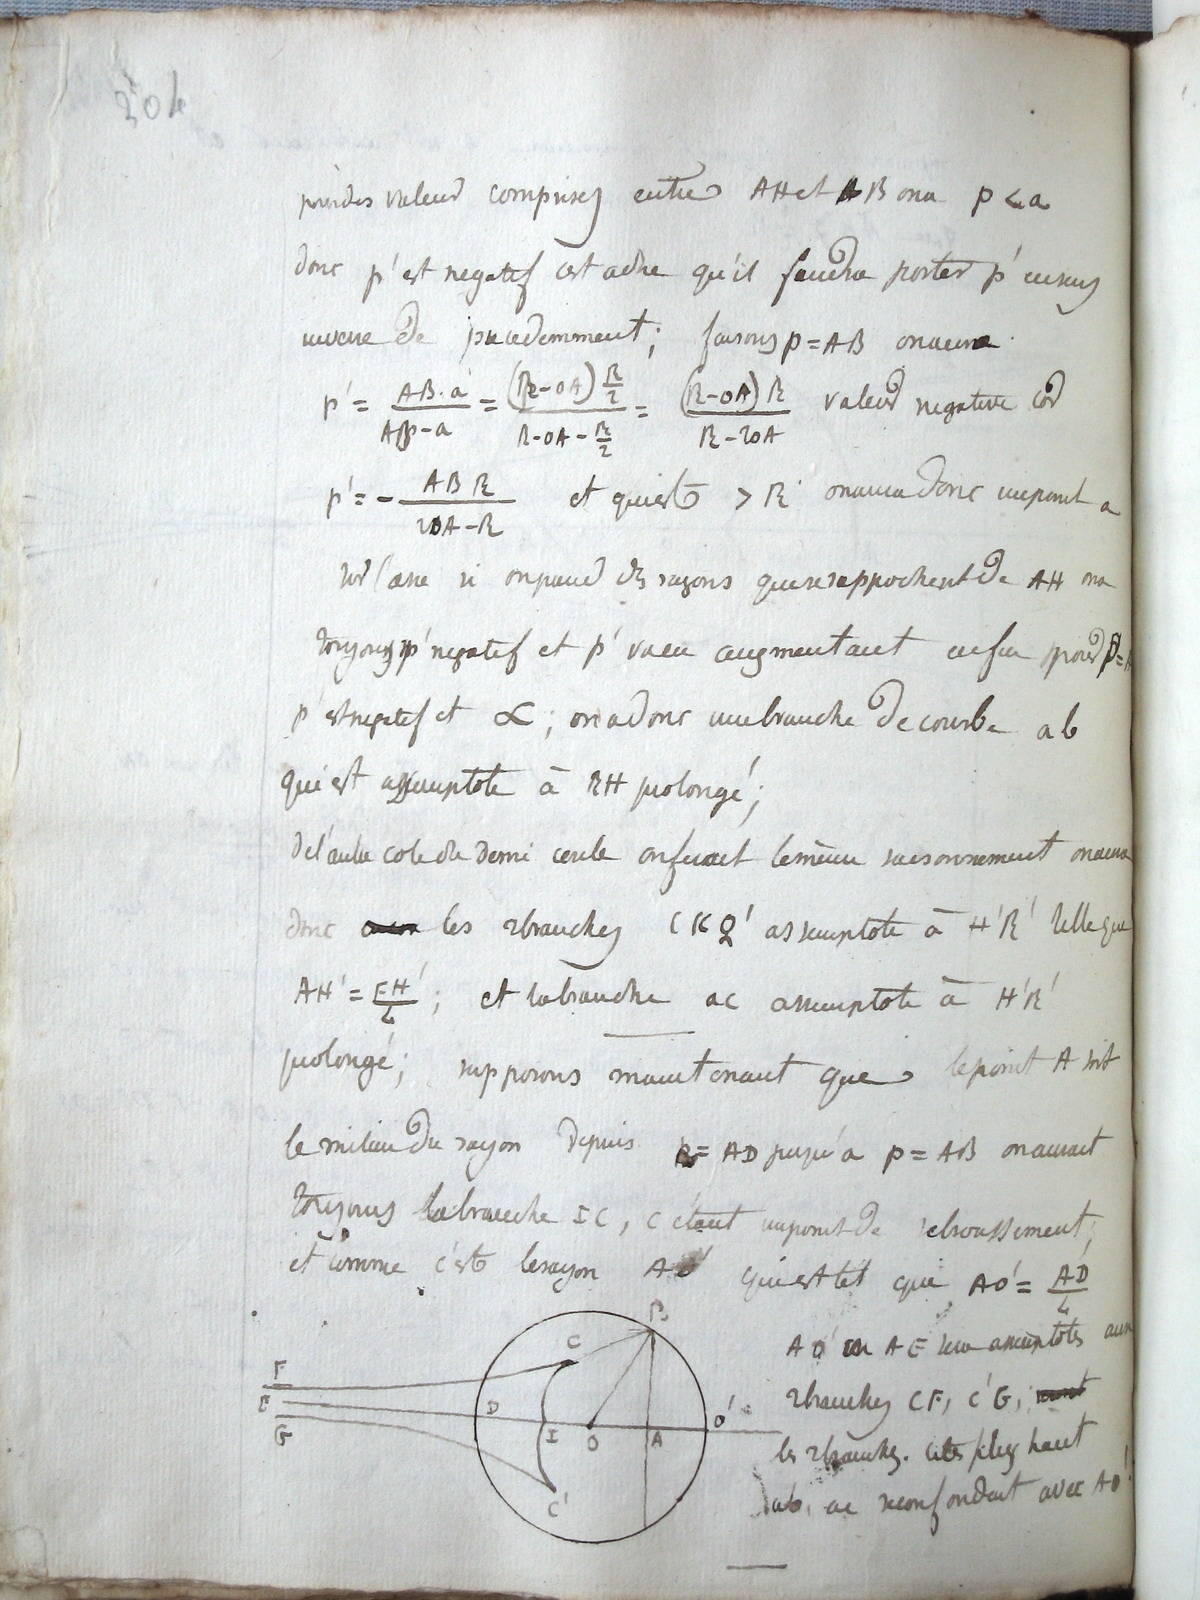 204
pour des valeurs comprises entre AH et AB on a p < a
donc p' est negatif c'est a dire qu'il faudra porter p' en sens
inverse de precedemment ; faisons p = AB on aura
p' = AB.a / AB-a = (R-OA) R/2 / R-OA-R/2 = (R-OA) R / R-2OA valeur negative
p' = - AB R / 2OA-R et qui est > R on aura donc un point a
sur l'axe si on prend des rayons qui se rapprochent de AH on a
toujours p' negatif et p' va en augmentant enfin pour p =
p' est negatif et ∝ ; on a donc une branche de courbe ab
qui est assymptote à RH prolongé ;
de l'autre coté du demi cercle on ferait le même raisonnement on aura
donc les 2 branches CKQ' assymptote à H'R' telle que
AH' = EH'/4 ; et la branche ac assymptote à H'R'
prolongé ; supposons maintenant que le point A soit
le milieu du rayon Depuis p = AD jusqu'a p = AB on aurait
toujours la branche IC, C étant un point de rebroussement ;
et comme c'est le rayon AO' qui est tel que AO' = AD/4
AO' ou AE sera assymptote aux
2 branches CF, C'G ;
les 2 branches. cités plus haut
ab, ac se confondent avec AO'
F
E
G
D
I
O
A
O'
B
C
C'